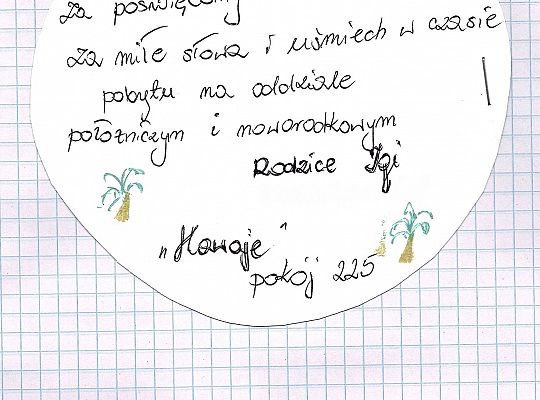 za
za miłe słowa i uśmiech w czasie
pobytu na oddziale
położniczym i noworodkowym
Rodzice Igi
„Hawaje"
pokój 225